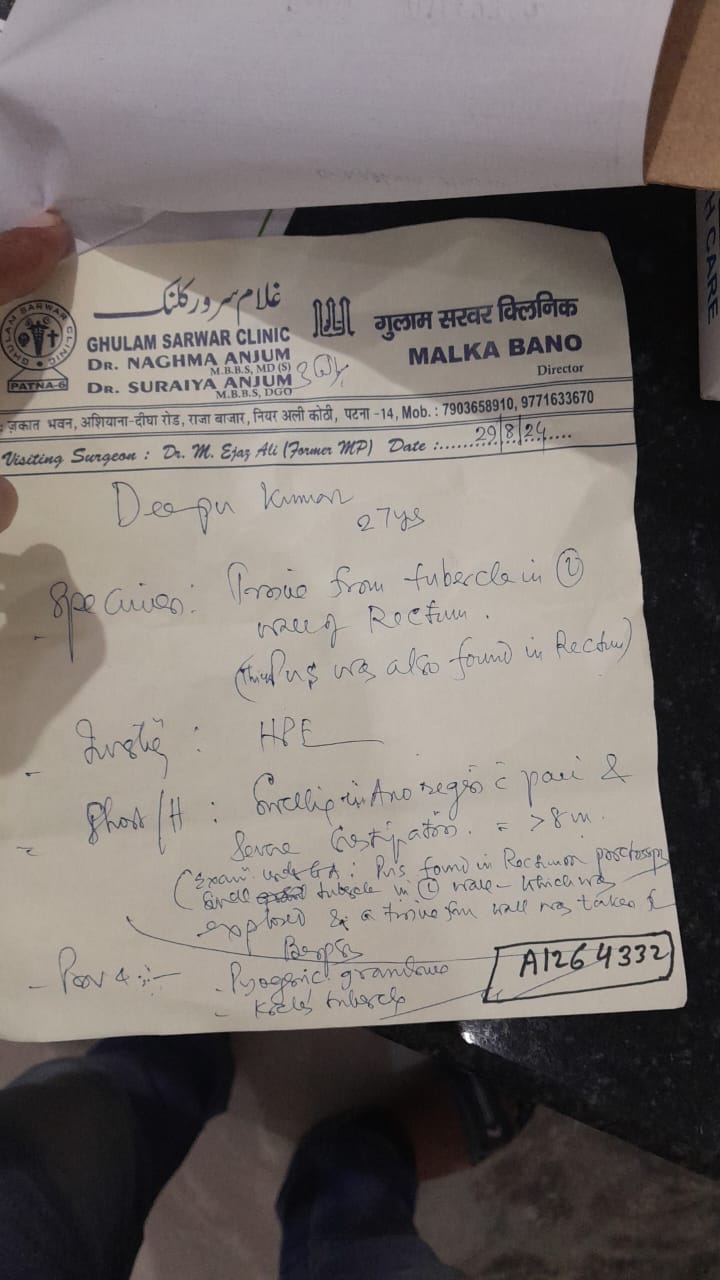 غلام سرور کلنک
GHULAM SARWAR CLINIC
DR. NAGHMA ANJUM
M.B.B.S, MD (S)
DR. SURAIYA ANJUM
M.B.B.S, DGO
GHULAM SARWAR CLINIC
PATNA-6
गुलाम सरवर क्लिनिक
MALKA BANO
Director
ज़कात भवन, अशियाना-दीघा रोड, राजा बाजार, नियर अली कोठी, पटना -14, Mob. : 7903658910, 9771633670
Visiting Surgeon : Dr. M. Ejaz Ali (Former MP) Date :.......29/8/24....
Deepu Kumar
27ys
Specimen: Tissue from tubercle in L
wall of Rectum.
(Thick Pus was also found in Rectum)
: HPE
Short/H : Swelling in Ano region c pain &
Severe Constipation. = >8m.
(Exam. under GA: Pus found in Rectum on proctoscopy
Small tubercle in L wall - which was
explored & a tissue from wall was taken for
Biopsy
- Prov :-
- Pyogenic granuloma
- Koch's tubercle
A1264332
H CARE